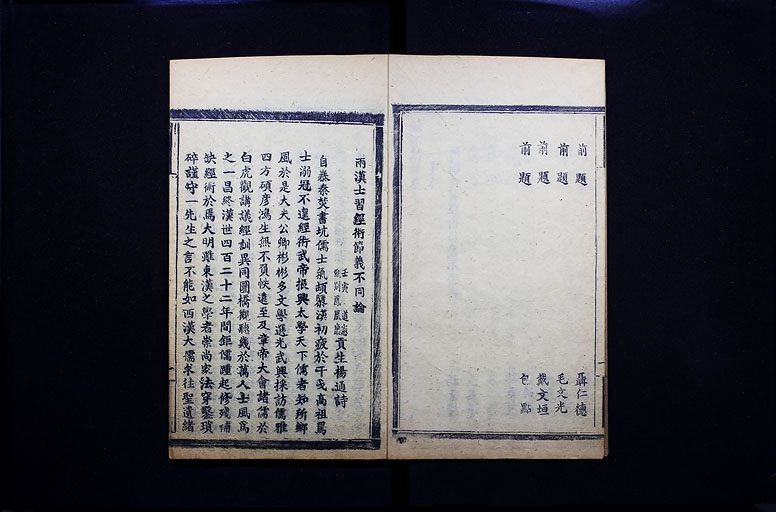 前題 聶仁德
前題 毛文光
前題 戴文垣
前題 包點
兩漢士習經術節義不同論
壬寅 道憲 貢生楊通詩
自暴秦焚書坑儒士氣頹靡漢初疲於干戈高祖罵
士溺冠不遑經術武帝振興太學天下儒者知所嚮
風於是大夫公卿彬彬多文學選光武興採訪儒雅
四方碩彥鴻生無不負帙遠至及章帝大會諸儒於
白虎觀講議經訓異同圜橋觀聽幾於萬人士風為
之一昌終漢世四百二十二年間鉅儒踵起修殘補
缺經術於焉大明雖東漢之學者崇尚家法穿鑿瑣
碎謹守一先生之言不能如西漢大儒求往聖遺緒